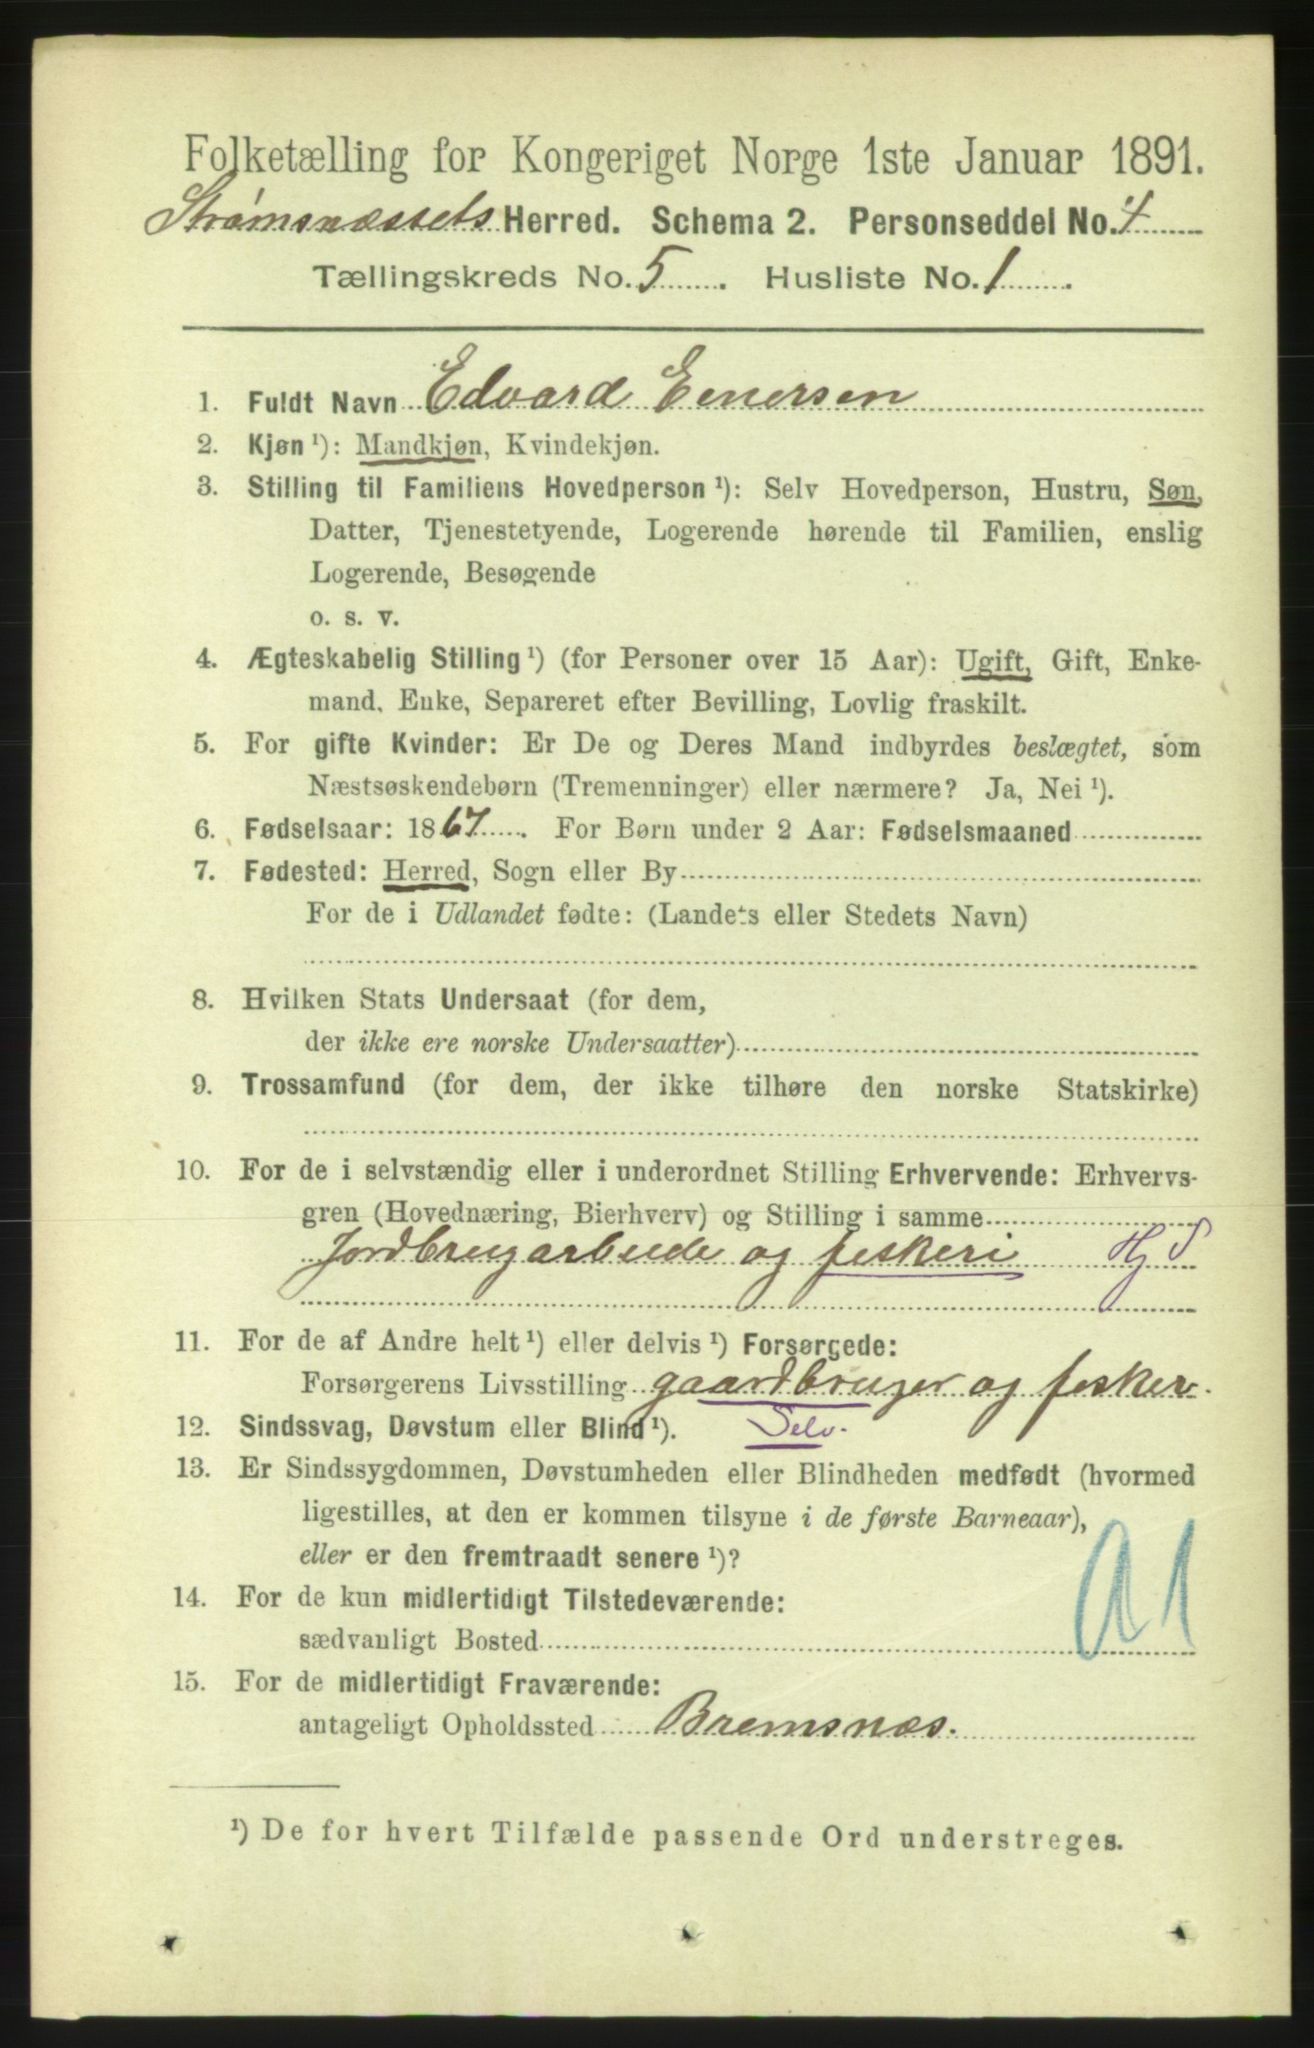 Folketælling for Kongeriget Norge 1ste Januar 1891.
Strømsnæssets Herred. Schema 2. Personseddel No. 4
Tællingskreds No. 5. Husliste No. 1.
1. Fuldt Navn Edvard Enersen
2. Kjøn ¹): Mandkjøn, Kvindekjøn.
3. Stilling til Familiens Hovedperson ¹): Selv Hovedperson, Hustru, Søn,
Datter, Tjenestetyende, Logerende hørende til Familien, enslig
Logerende, Besøgende
o. s. v.
4. Ægteskabelig Stilling ¹) (for Personer over 15 Aar): Ugift, Gift, Enke-
mand, Enke, Separeret efter Bevilling, Lovlig fraskilt.
5. For gifte Kvinder: Er De og Deres Mand indbyrdes beslægtet, som
Næstsøskendebørn (Tremenninger) eller nærmere? Ja, Nei ¹).
6. Fødselsaar: 1867. For Børn under 2 Aar: Fødselsmaaned
7. Fødested: Herred, Sogn eller By
For de i Udlandet fødte: (Landets eller Stedets Navn)
8. Hvilken Stats Undersaat (for dem,
der ikke ere norske Undersaatter)
9. Trossamfund (for dem, der ikke tilhøre den norske Statskirke)
10. For de i selvstændig eller i underordnet Stilling Erhvervende: Erhvervs-
gren (Hovednæring, Bierhverv) og Stilling i samme
Jordbrugarbeide og fiskeri Hj S
11. For de af Andre helt ¹) eller delvis ¹) Forsørgede:
Forsørgerens Livsstilling gaardbruger og fisker.
12. Sindssvag, Døvstum eller Blind ¹). Selv.
13. Er Sindssygdommen, Døvstumheden eller Blindheden medfødt (hvormed
ligestilles, at den er kommen tilsyne i de første Barneaar),
eller er den fremtraadt senere ¹)?
A1
14. For de kun midlertidigt Tilstedeværende:
sædvanligt Bosted
15. For de midlertidigt Fraværende:
antageligt Opholdssted Bremsnæs.
¹) De for hvert Tilfælde passende Ord understreges.